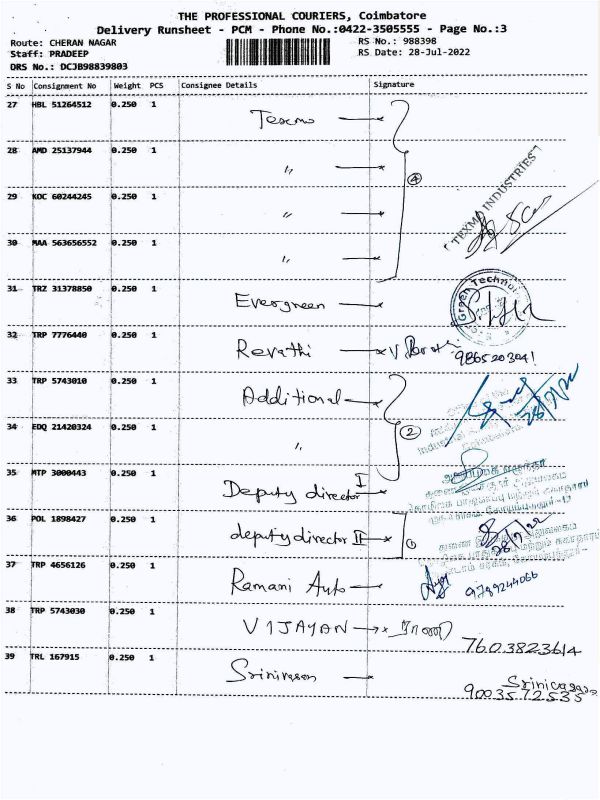 THE PROFESSIONAL COURIERS, Coimbatore
Delivery Runsheet - PCM - Phone No.:0422-3505555 - Page No.:3
Route: CHERAN NAGAR RS No.: 988398
Staff: PRADEEP RS Date: 28-Jul-2022
DRS No.: DCJB98839803
S No Consignment No Weight PCS Consignee Details Signature
27 HBL 51264512 0.250 1 Texmo
28 AMD 25137944 0.250 1 〃
29 KOC 60244245 0.250 1 〃 4
"TEXMO INDUSTRIES"
30 MAA 563656552 0.250 1 〃
31 TRZ 31378850 0.250 1 Evergreen
Green Techno
32 TRP 7776440 0.250 1 Revathi
9865203041
33 TRP 5743010 0.250 1 Additional
28/7/22
34 EDQ 21420324 0.250 1 〃 2
35 MTP 3000443 0.250 1 Deputy director I
36 POL 1898427 0.250 1 deputy director II 1
28/7/22
37 TRP 4656126 0.250 1 Ramani Auto
9789244066
38 TRP 5743030 0.250 1 VIJAYAN ராணி
7603823614
39 TRL 167915 0.250 1 Srinivasan
Srinivasan
9003572535